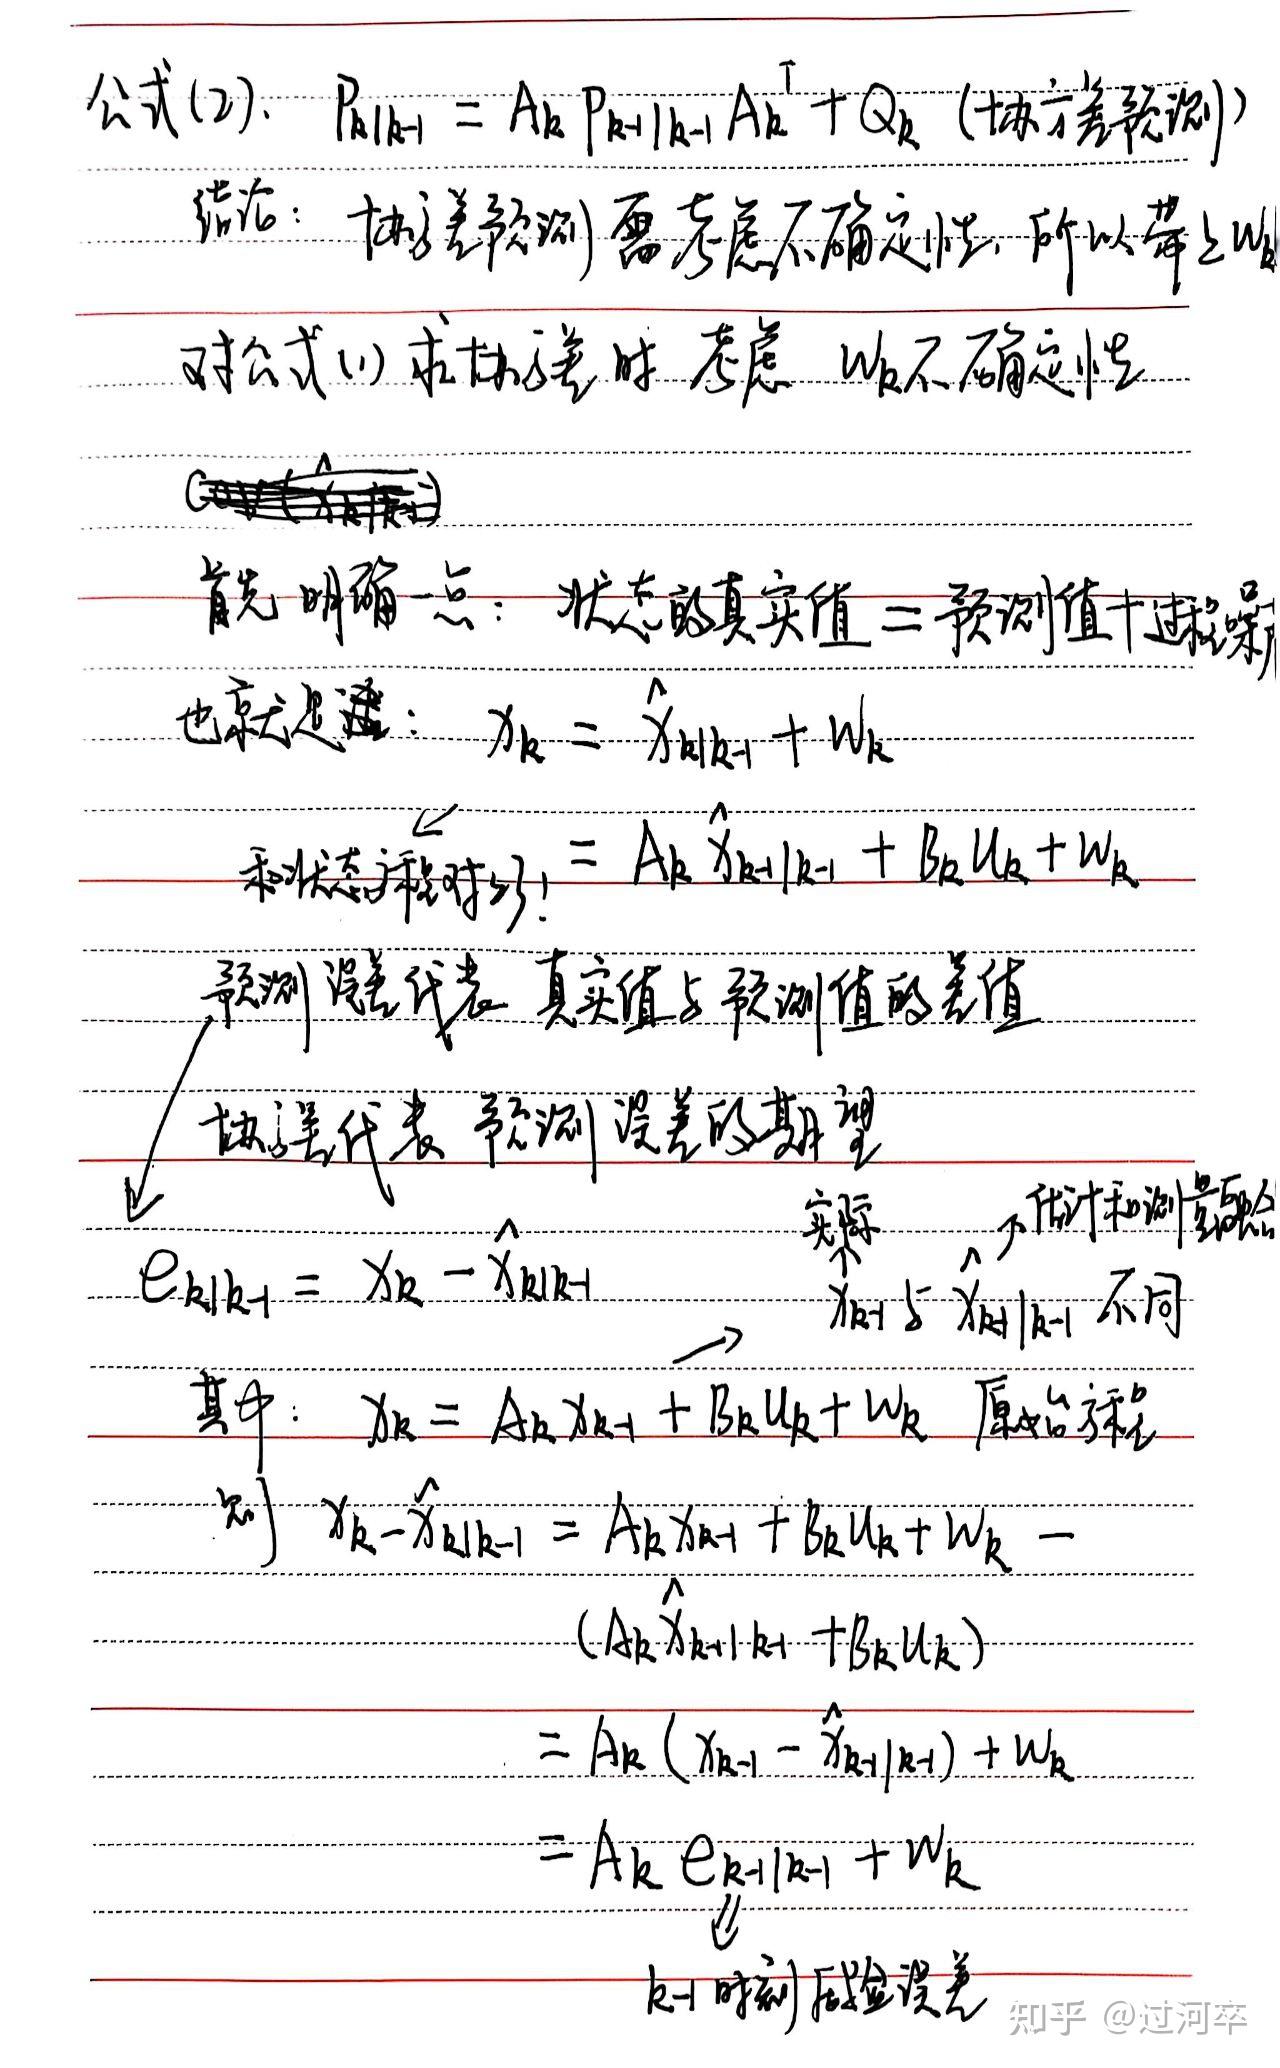 公式(2). P_{k|k-1} = A_k P_{k-1|k-1} A_k^T + Q_k (协方差预测)
结论: 协方差预测需考虑不确定性, 所以带上 W_k
对公式(1)求协方差时 考虑 W_k不确定性
首先明确一点: 状态的真实值 = 预测值+过程噪声
也就是: x_k = x̂_{k|k-1} + W_k
= A_k x̂_{k-1|k-1} + B_k u_k + W_k
和状态方程对了!
预测误差代表 真实值与预测值的差值
协方差代表 预测误差的期望
实际 估计和测量融合
e_{k|k-1} = x_k - x̂_{k|k-1} x_{k-1}与 x̂_{k-1|k-1} 不同
其中: x_k = A_k x_{k-1} + B_k u_k + W_k 原始方程
则 x_k - x̂_{k|k-1} = A_k x_{k-1} + B_k u_k + W_k -
(A_k x̂_{k-1|k-1} + B_k u_k)
= A_k (x_{k-1} - x̂_{k-1|k-1}) + W_k
= A_k e_{k-1|k-1} + W_k
k-1 时刻后验误差
知乎 @过河卒